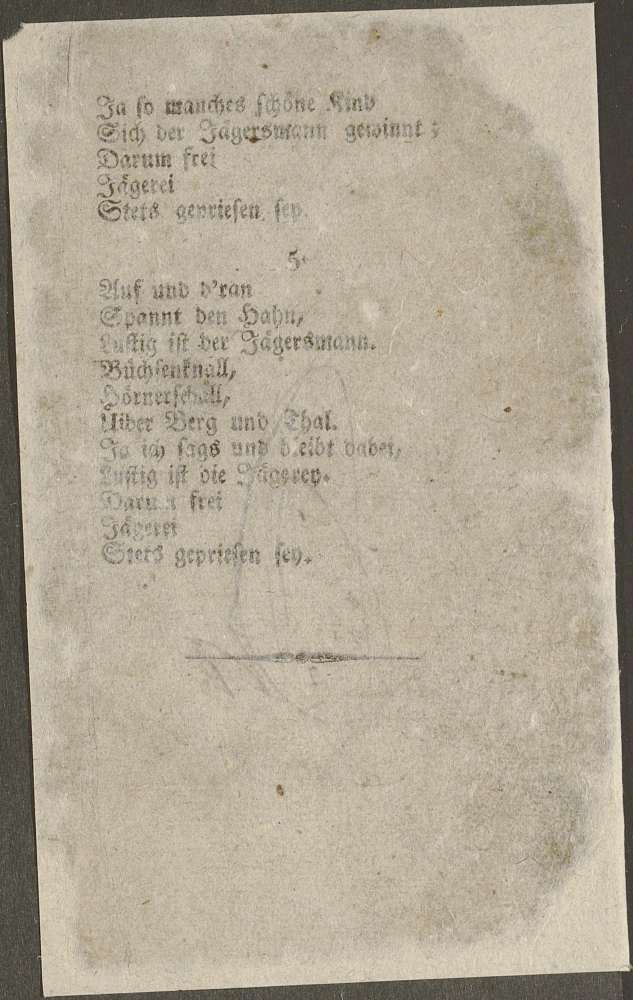 Ja so manches schöne Kind
Sich der Jägersmann gewinnt;
Darum frei
Jägerei
Stets gepriesen sey.
5.
Auf und d'ran
Spannt den Hahn,
Lustig ist der Jägersmann.
Büchsenknall,
Hörnerschall,
Uiber Berg und Thal.
Ja ich sags und bleibt dabei,
Lustig ist die Jägerey.
Darum frei
Jägerei
Stets gepriesen sey.